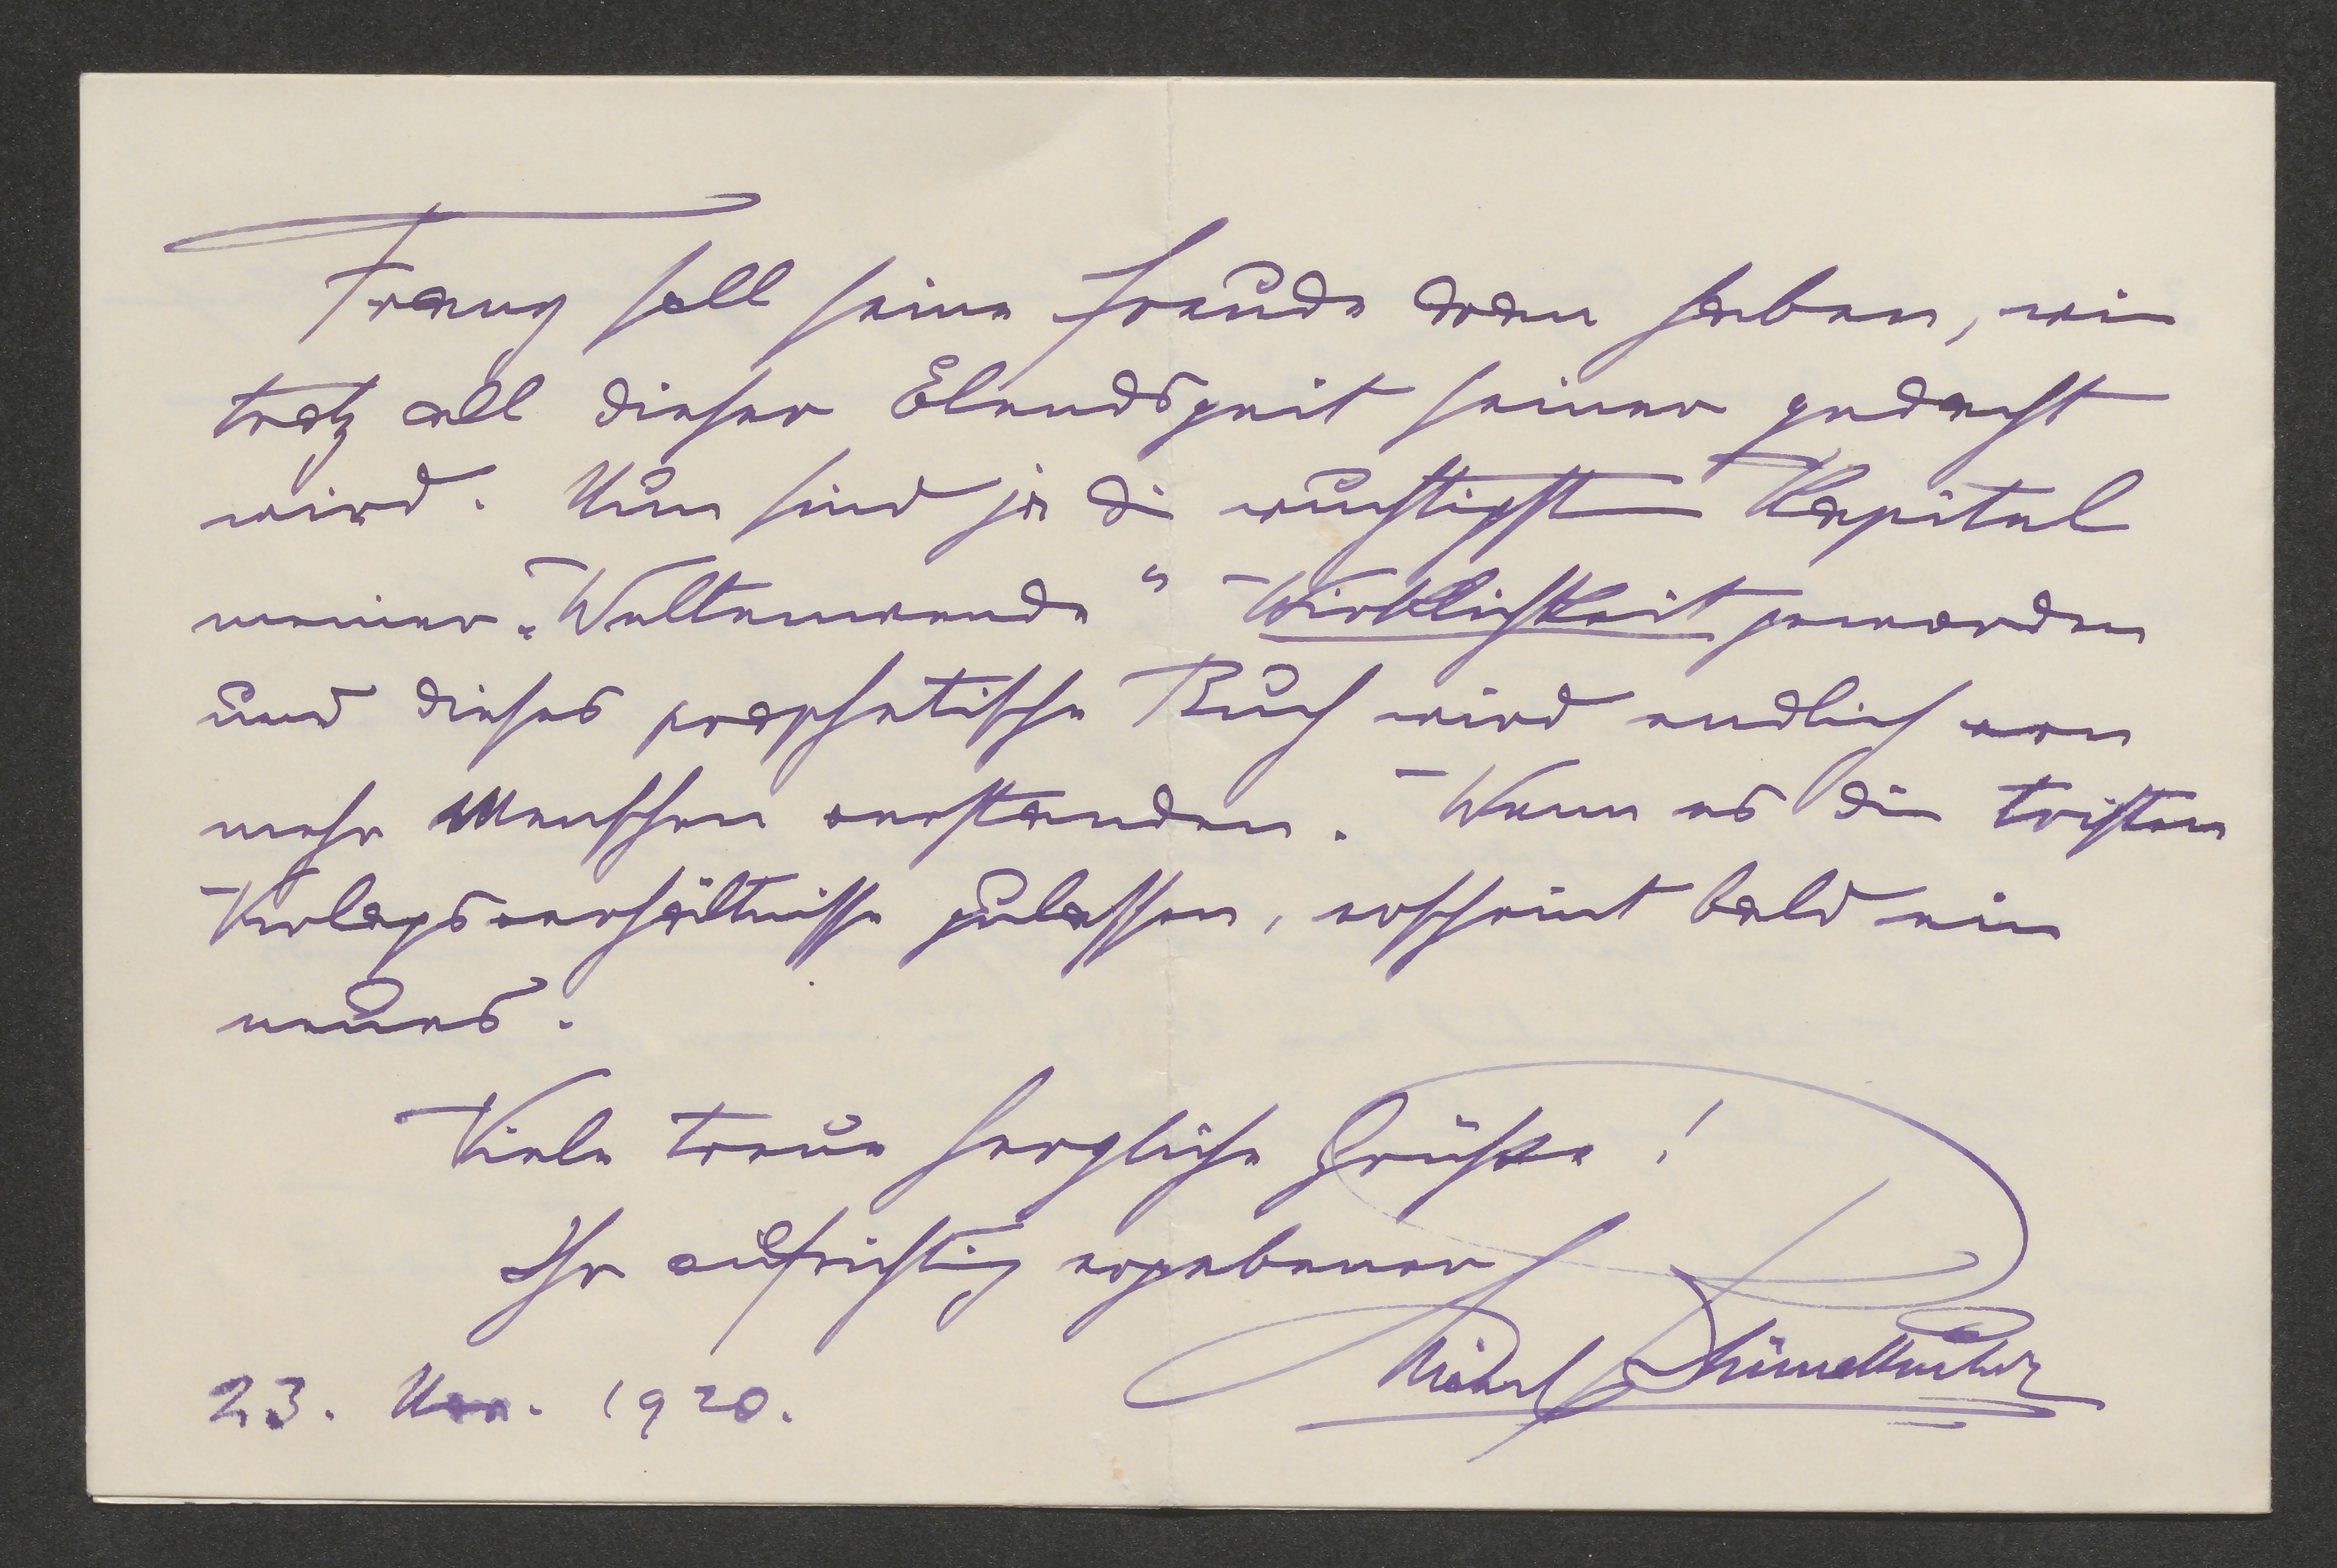 Franz soll seine Freude dran haben, wie
trotz all dieser Elendszeit seiner gedacht
wird. Nun sind ja die wuchtigsten Kapitel
meiner „Weltenwende“ Wirklichkeit geworden
und dieses prophetische Buch wird endlich von
mehr Menschen verstanden. Wenn es die tristen
Verlagsverhältnisse zulassen, erscheint bald ein
neues.
Viele treue herzliche Grüße!
Ihr aufrichtig ergebener
23. Nov. 1920.